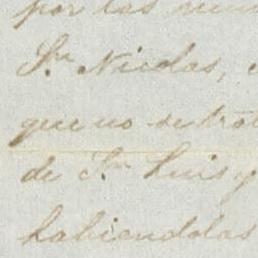 por las
Sn Nicolas,
que no se trat
de Sn Luis y
habiendolas